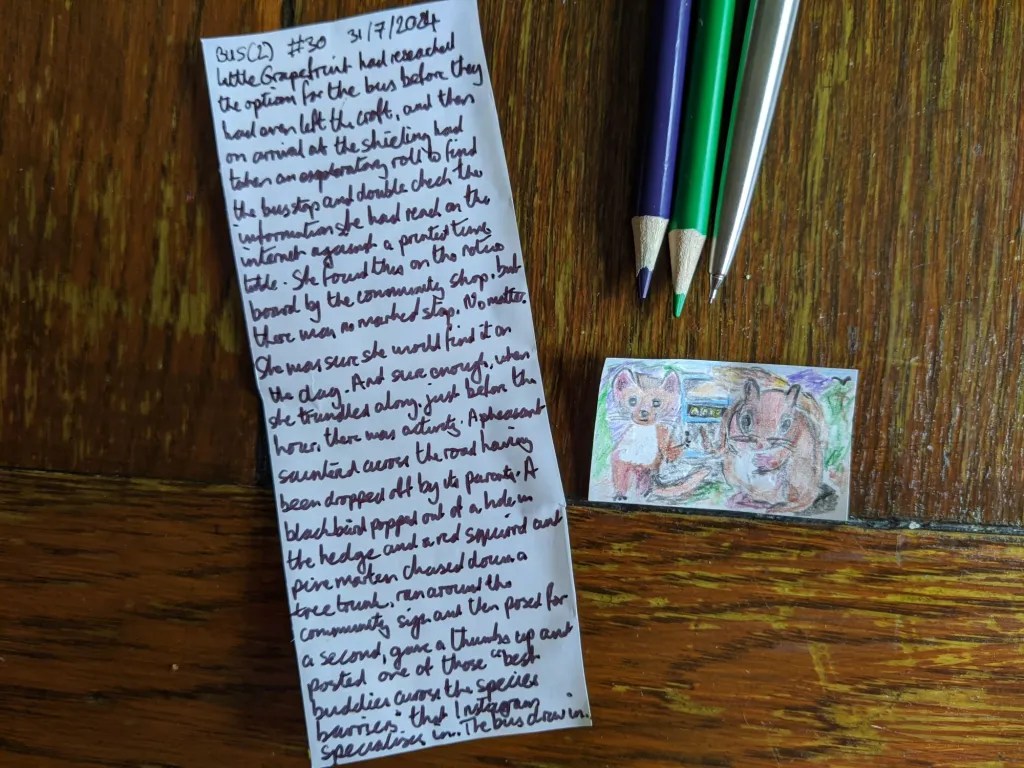 BUS(2) #30 31/7/2024
Little Grapefruit had reseached
the options for the bus before they
had even left the croft, and then
on arrival at the shieling had
taken an exploratory roll to find
the bus stop and double check the
information she had read on the
internet against a printed time
table. She found this on the notice
board by the community shop, but
there was no marked stop. No matter.
She was sure she would find it on
the day. And sure enough, when
she trundled along, just before the
hour, there was activity. A pheasant
sauntered across the road having
been dropped off by its parents. A
blackbird popped out of a hole in
the hedge and a red squirrel and
pine marten chased down a
tree trunk, ran around the
community sign and then posed for
a second, gave a thumbs up and
posted one of those "best
buddies across the species
barriers" that Instagram
specialises in. The bus drew in.